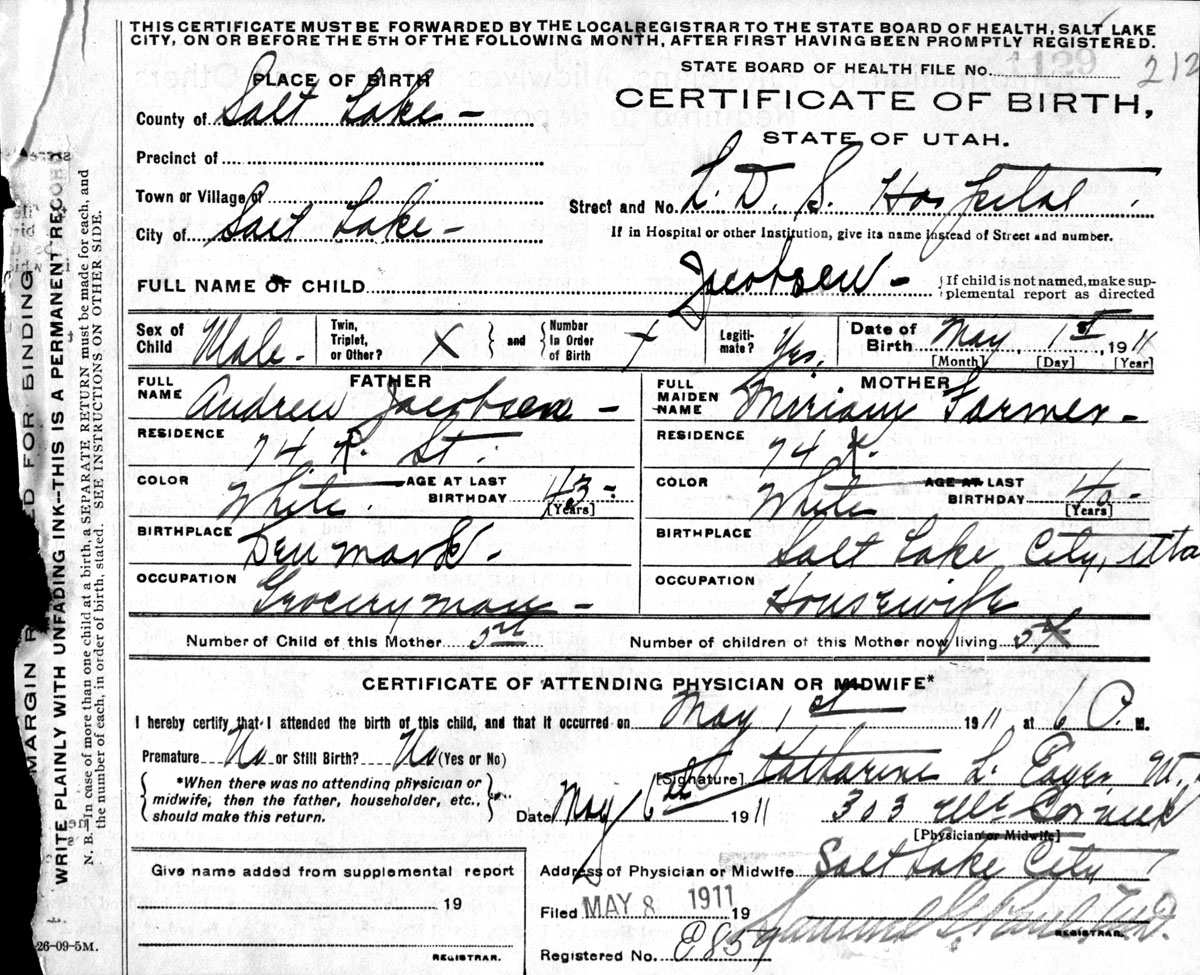 THIS CERTIFICATE MUST BE FORWARDED BY THE LOCAL REGISTRAR TO THE STATE BOARD OF HEALTH, SALT LAKE
CITY, ON OR BEFORE THE 5TH OF THE FOLLOWING MONTH, AFTER FIRST HAVING BEEN PROMPTLY REGISTERED.
STATE BOARD OF HEALTH FILE No. 1129 212
PLACE OF BIRTH
CERTIFICATE OF BIRTH,
STATE OF UTAH.
County of Salt Lake -
Precinct of
Town or Village of
Street and No. L. D. S. Hospital
City of Salt Lake -
If in Hospital or other Institution, give its name instead of Street and number.
FULL NAME OF CHILD Jacobsen -
If child is not named, make sup-
plemental report as directed
Sex of Child Male - Twin, Triplet, or Other? X and Number In Order of Birth X Legiti-mate? Yes, Date of Birth May 1st, 1911
[Month] [Day] [Year]
FATHER MOTHER
FULL NAME Andrew Jacobsen - FULL MAIDEN NAME Miriam Farmer -
RESIDENCE 74 K. St. RESIDENCE 74 K.
COLOR White AGE AT LAST BIRTHDAY 43 - [Years] COLOR White AGE AT LAST BIRTHDAY 40 - [Years]
BIRTHPLACE Denmark - BIRTHPLACE Salt Lake City, Uta
OCCUPATION Groceryman - OCCUPATION Housewife
Number of Child of this Mother 5th Number of children of this Mother now living 5
CERTIFICATE OF ATTENDING PHYSICIAN OR MIDWIFE*
I hereby certify that I attended the birth of this child, and that it occurred on May 1st 1911, at 6 P. M.
Premature No or Still Birth? No (Yes or No)
*When there was no attending physician or
midwife, then the father, householder, etc.,
should make this return.
[Signature] Katharine L.
Date May 6th 1911 303 McCornick
[Physician or Midwife]
Address of Physician or Midwife Salt Lake City
Give name added from supplemental report
19
REGISTRAR.
Filed MAY 8 1911 19
REGISTRAR.
Registered No. E857
26-09-5M.
MARGIN R ED FOR BINDING
WRITE PLAINLY WITH UNFADING INK--THIS IS A PERMANENT RECORD
N. B.--In case of more than one child at a birth, a SEPARATE RETURN must be made for each, and
the number of each, in order of birth, stated. SEE INSTRUCTION ON OTHER SIDE.